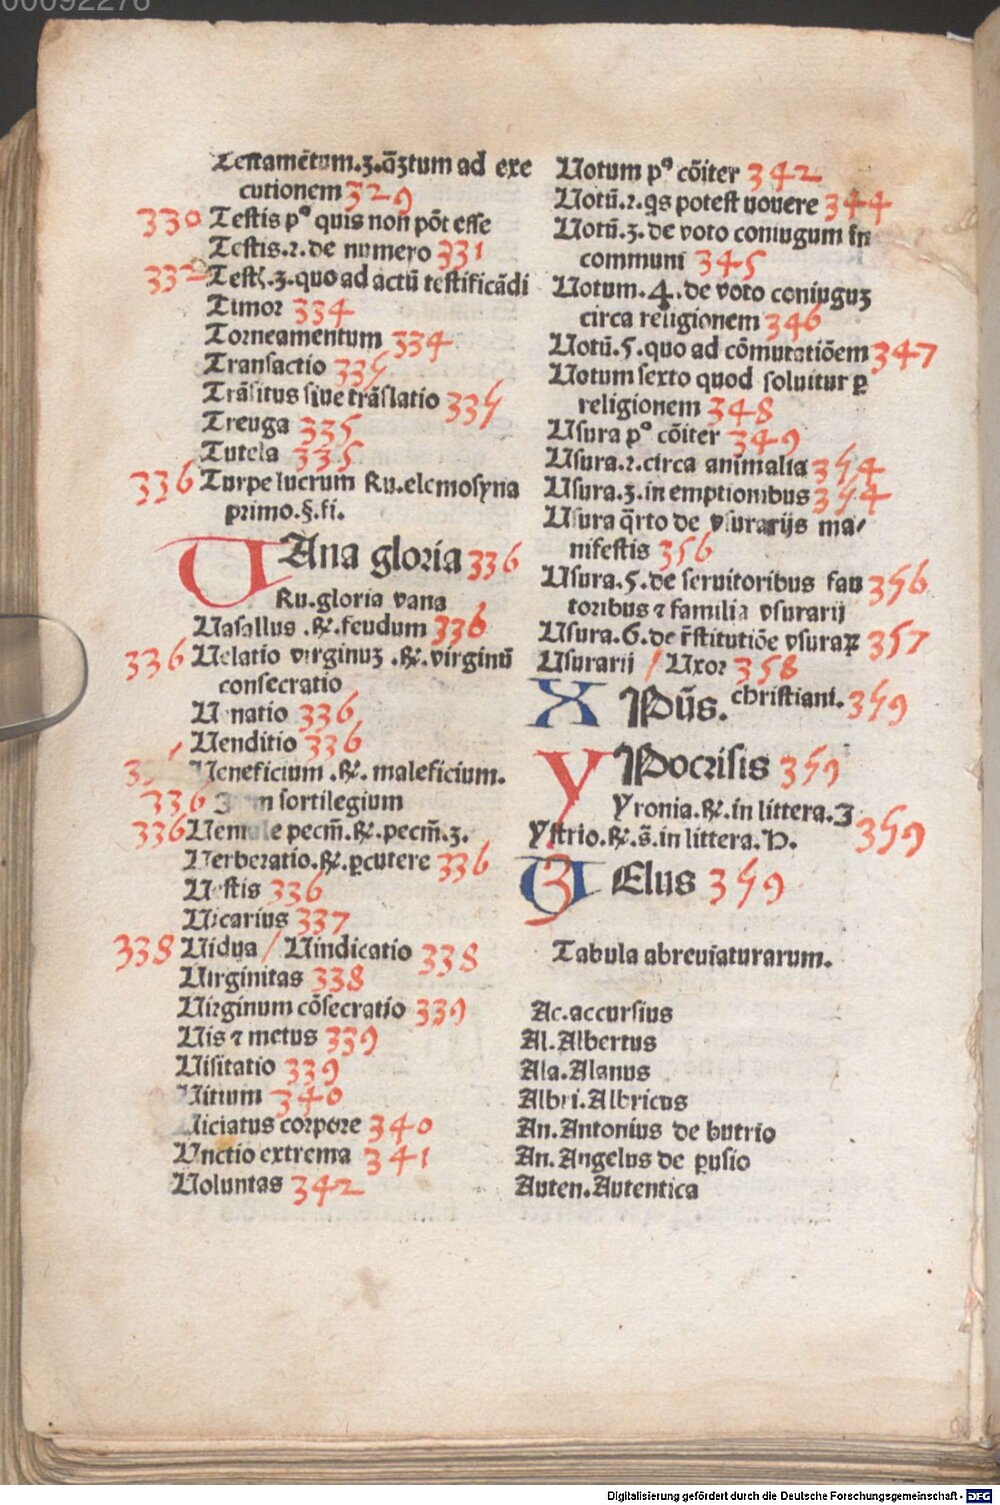 00092276
Testamētum.3.q̄ꝫtum ad exe
cutionem 329
330 Testis pº quis non pōt esse
Testis.2.de numero 331
332 Testꝭ.3.quo ad actū testificādi
Timor 334
Torneamentum 334
Transactio 335
Trāsitus siue trāslatio 335
Treuga 335
Tutela 335
336 Turpe lucrum Ru.elemosyna
primo.§.fi.
VAna gloria 336
Ru.gloria vana
Vasallus .℞.feudum 336
336 Velatio virginuꝫ .℞.virginū
consecratio
Venatio 336
Venditio 336
Veneficium .℞. maleficium.
336 sortilegium
336 Veniale peccm̄.℞.peccm̄.3.
Verberatio.℞.ꝑcutere 336
Vestis 336
Vicarius 337
338 Vidua / Vindicatio 338
Virginitas 338
Virginum cōsecratio 339
Vis ⁊ metus 339
Visitatio 339
Vitium 340
Viciatus corpore 340
Vnctio extrema 341
Voluntas 342
Votum pº cōiter 342
Votū.2.qs potest vouere 344
Votū.3.de voto coniugum in
communi 345
Votum.4.de voto coniuguꝫ
circa religionem 346
Votū.5.quo ad cōmutatiōem 347
Votum sexto quod soluitur ꝑ
religionem 348
Vsura pº cōiter 349
Vsura.2.circa animalia 354
Vsura.3.in emptionibus 354
Vsura q̄rto de vsurarijs ma⸗
nifestis 356
Vsura.5.de seruitoribus fau 356
toribus ⁊ familia vsurarij
Vsura.6.de r̄stitutiōe vsuraꝝ 357
Vsurarij / Vxor 358
XPūs. christiani. 359
YPocrisis 359
Yronia.℞.in littera.I
Ystrio.℞.s̄.in littera.H. 359
ZElus 359
Tabula abreuiaturarum.
Ac.accursius
Al.Albertus
Ala.Alanus
Albri.Albricus
An.Antonius de butrio
An.Angelus de ꝑusio
Auten.Autentica
Digitalisierung gefördert durch die Deutsche Forschungsgemeinschaft - DFG